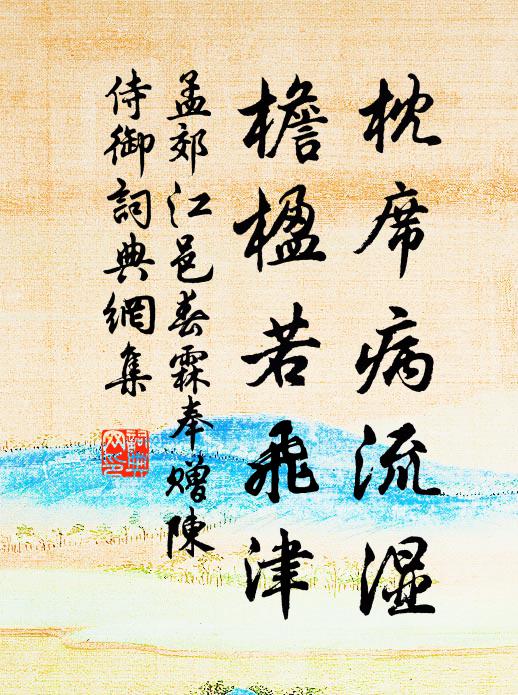 枕席病流湿
檐楹若飛津
孟郊江邑春霖奉贈陳
侍御詞典網集